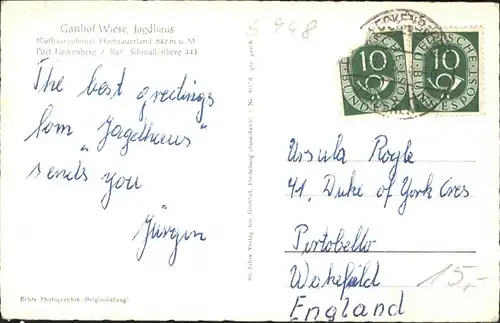 Gasthof Wiese, Jagdhaus
(Rothaargebirge) Hochsauerland 542 m ü. M.
Post Fleckenberg / Ruf: Schmallenberg 441
5948
The best greetings
from "Jagdhaus"
sends you
Jürgen
Echte Photographie (Originalabzug)
10
DEUTSCHE
BUNDESPOST
10
DEUTSCHE
BUNDESPOST
Ursula Royle
41. Duke of York Cres
Portobello
Wakefield
England
15,-